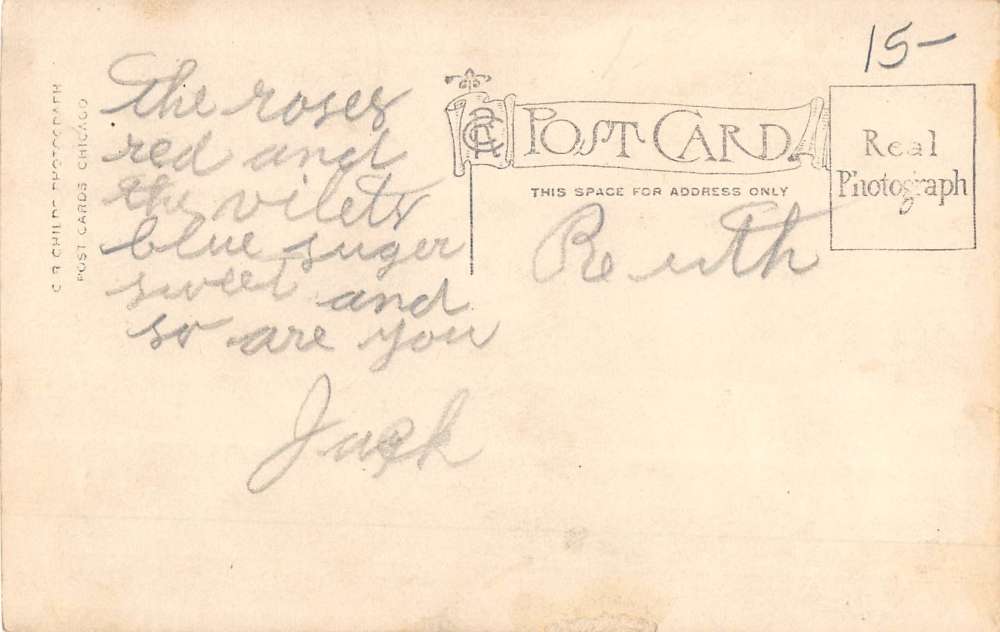 15-
C R CHILDS PHOTOGRAPH
POST CARDS CHICAGO
the roses
red and
the vilets
blue suger
sweet and
so are you
Jack
POST CARD
THIS SPACE FOR ADDRESS ONLY
Ruth
Real
Photograph